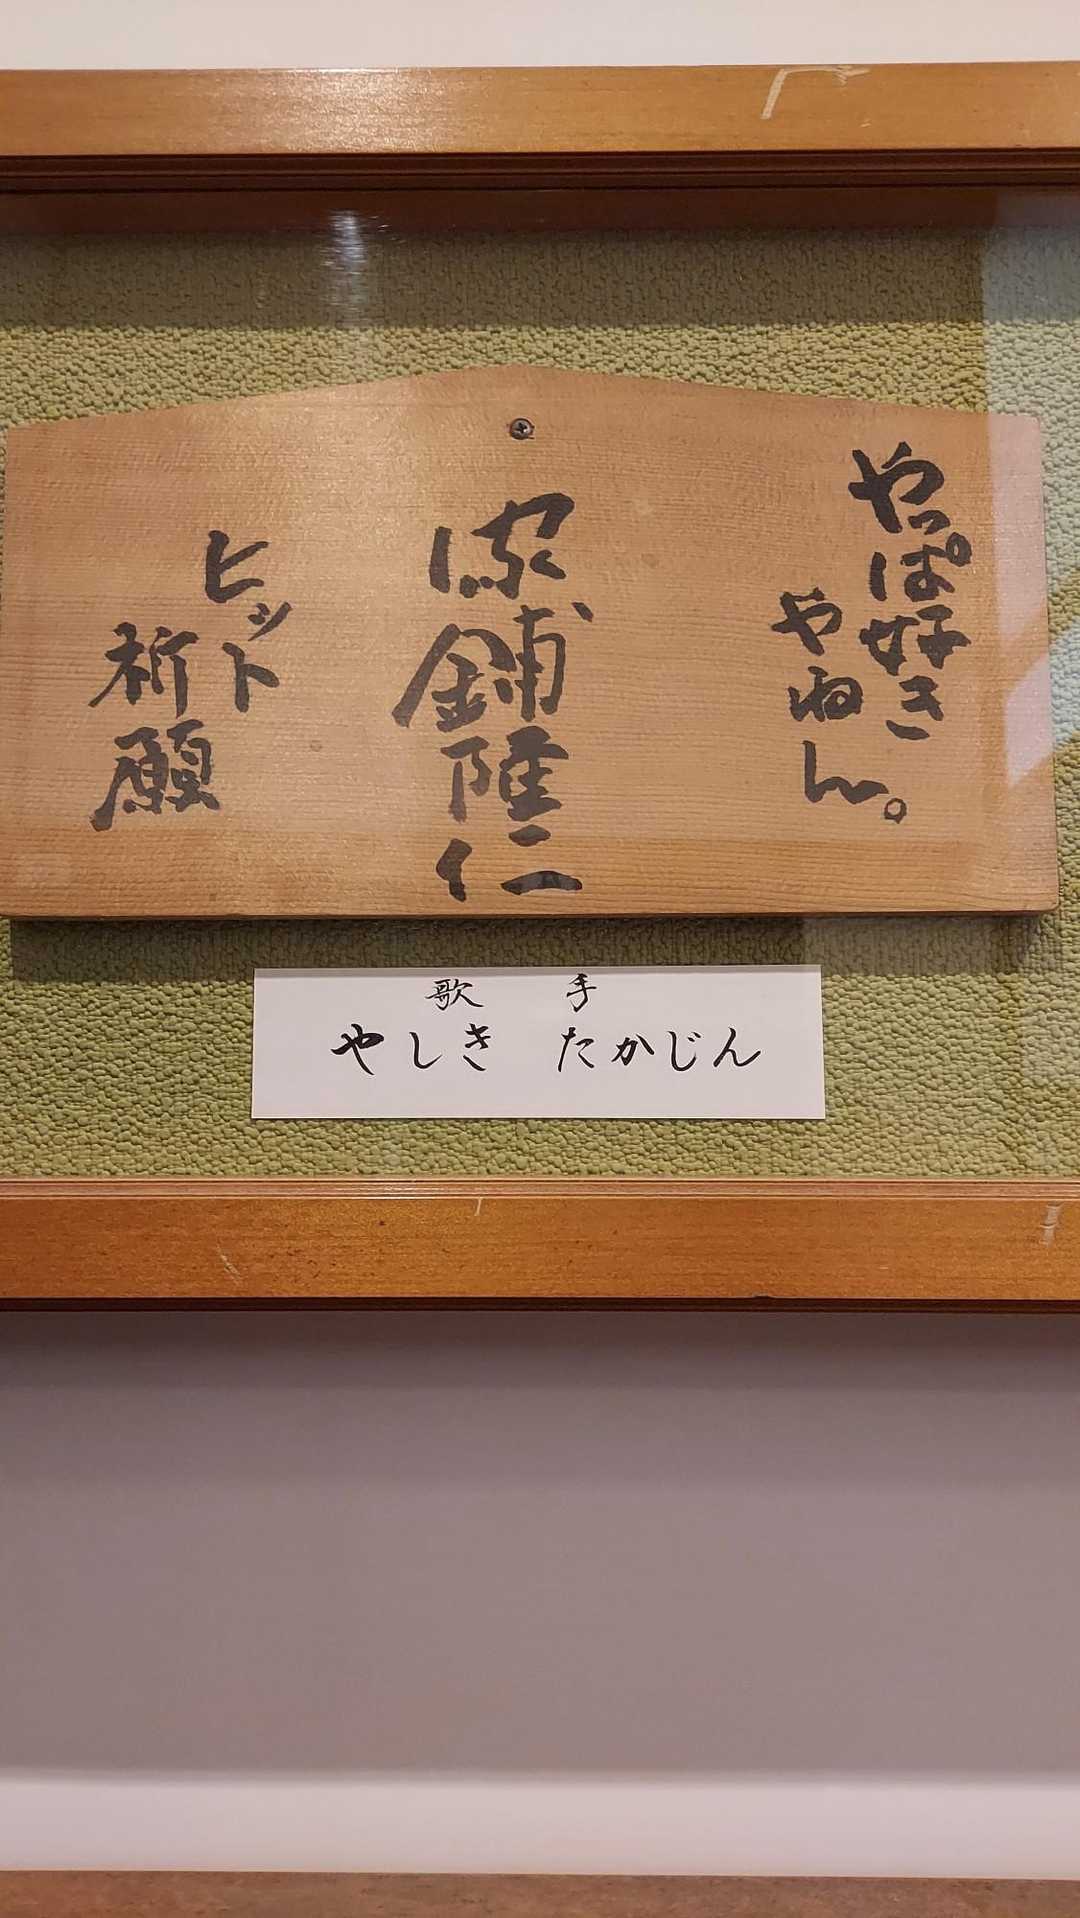 やっぱ好き
やねん。
家鋪隆仁
ヒット
祈願
歌手
やしき たかじん